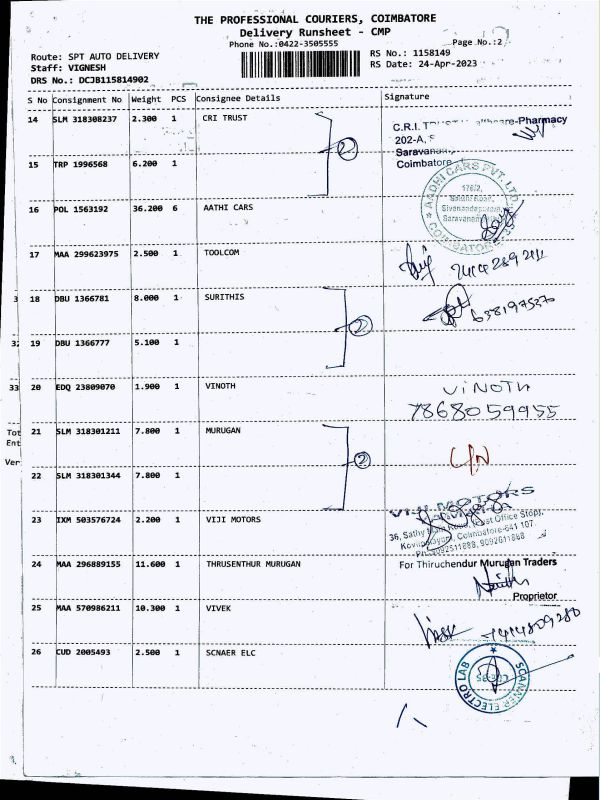 THE PROFESSIONAL COURIERS, COIMBATORE
Delivery Runsheet - CMP
Phone No.:0422-3505555
Page No.:2
Route: SPT AUTO DELIVERY
RS No.: 1158149
Staff: VIGNESH
RS Date: 24-Apr-2023
DRS No.: DCJB115814902
S No Consignment No Weight PCS Consignee Details Signature
14 SLM 318308237 2.300 1 CRI TRUST
2
C.R.I.
202-A,
Saravan
Coimbatore
15 TRP 1996568 6.200 1
AADHI CARS PVT. LTD.
176/2,
Sathy Road,
Sivanandapuram,
Saravanam
COIMBATORE
16 POL 1563192 36.200 6 AATHI CARS
17 MAA 299623975 2.500 1 TOOLCOM
3 18 DBU 1366781 8.000 1 SURITHIS
2
19 DBU 1366777 5.100 1
33 20 EDQ 23809070 1.900 1 VINOTH
VINOTH
7868059955
Tot 21 SLM 318301211 7.800 1 MURUGAN
Ent
2
Ver
22 SLM 318301344 7.800 1
23 IXM 503576724 2.200 1 VIJI MOTORS
VIJI MOTORS
36, Sathy Main Road, (Post Office Stop),
Kovilpalayam, Coimbatore-641 107.
24 MAA 296889155 11.600 1 THRUSENTHUR MURUGAN
For Thiruchendur Murugan Traders
Proprietor
25 MAA 570986211 10.300 1 VIVEK
26 CUD 2005493 2.500 1 SCNAER ELC
SCANNER ELECTRO LAB